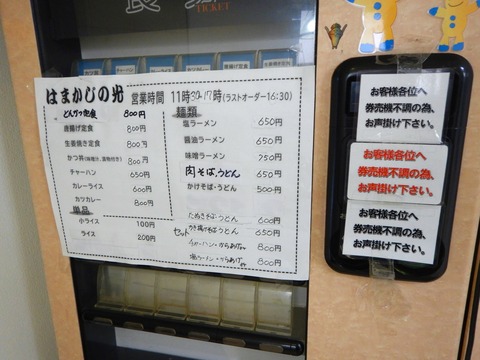 食
TICKET
はまかじの光 営業時間 11時30-17時(ラストオーダー16:30)
とんかつ定食 800円
唐揚げ定食 800円
生姜焼き定食 800円
かつ丼(味噌汁、漬物付き) 800円
チャーハン 650円
カレーライス 600円
カツカレー 800円
単品
小ライス 100円
ライス 200円
麺類
塩ラーメン 650円
醤油ラーメン 650円
味噌ラーメン 750円
肉そば、うどん 650円
かけそば・うどん 500円
たぬきそば・うどん 600円
かき揚げそば・うどん 650円
セット
チャーハン・からあげ 800円
塩ラーメン・からあげ 800円
お客様各位へ
券売機不調の為、
お声掛け下さい。
お客様各位へ
券売機不調の為、
お声掛け下さい。
お客様各位へ
券売機不調の為、
お声掛け下さい。